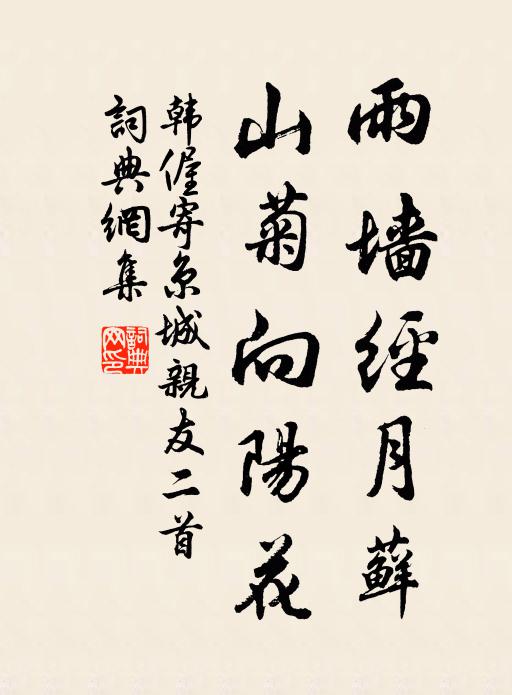 雨墙經月蘚
山菊向陽花
韩偓寄京城親友二首
詞典網集
詞典網印